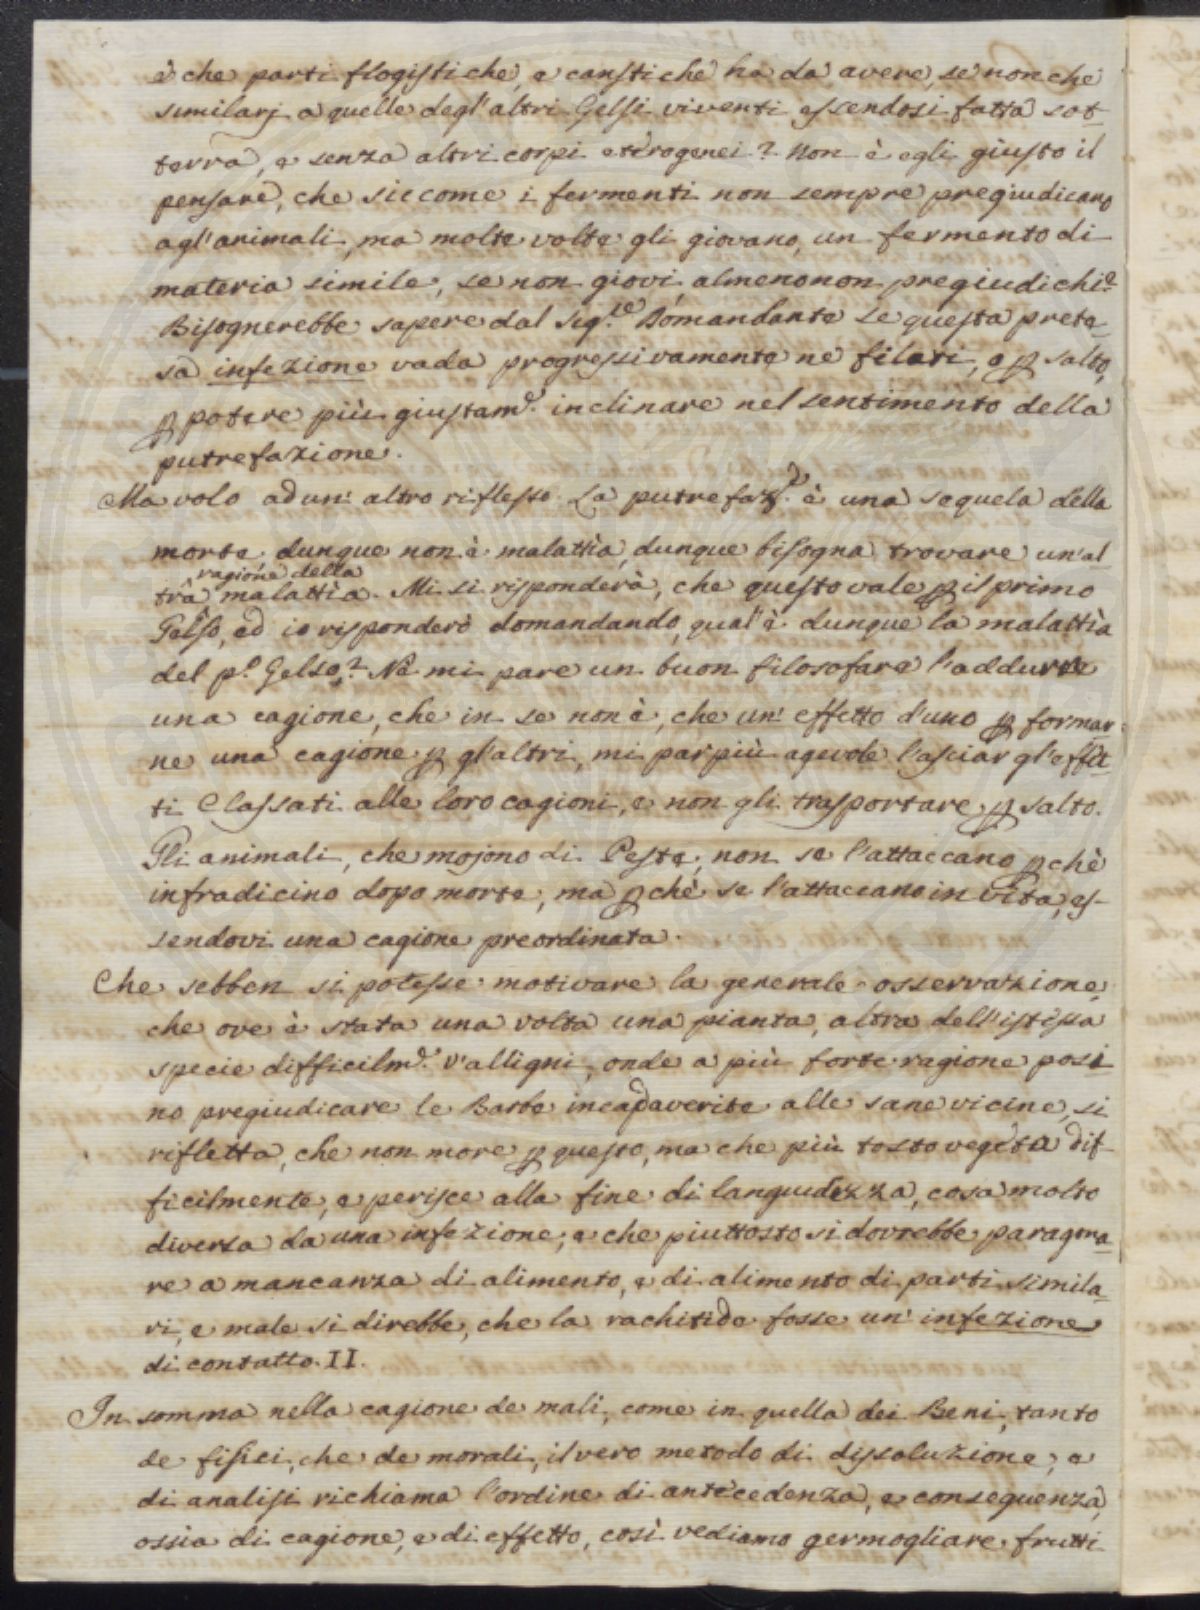 è che parti flogistiche, e caustiche ha da avere, se non che
similarj a quelle degl'altri Gelsi viventi essendosi fatta sot-
terra, e senza altri corpi eterogenei? Non è egli giusto il
pensare, che siccome i fermenti non sempre pregiudicano
agl'animali, ma molte volte gli giovano, un fermento di
materia simile, se non giovi almeno non pregiudichi?
Bisognerebbe sapere dal Sig.re Domandante se questa prete-
sa infezione vada progressivamente ne filati, o ꝑ salto,
ꝑ potere più giustam.e inclinare nel sentimento della
putrefazione.
Ma volo ad un' altro riflesso. La putrefaz.e è una sequela della
morte. dunque non è malattia, dunque bisogna trovare un'al
ragione della
tra malattia. Mi si risponderà, che questo vale ꝑ il primo
Gelso, ed io risponderò domandando, qual'è dunque la malattia
del p.o Gelso? Nè mi pare un buon filosofare l'addurre
una cagione, che in se non è, che un' effetto d'uno ꝑ formar-
ne una cagione ꝑ gl'altri, mi par più agevole lasciar gl'effet-
ti Classati alle loro cagioni, e non gli trasportare ꝑ salto.
Gli animali, che mojono di Peste, non se l'attaccano ꝑchè
infradicino dopo morte, ma ꝑchè se l'attaccano in vita, es-
sendovi una cagione preordinata.
Che sebben si potesse motivare la generale osservazione,
che ove è stata una volta una pianta, altra dell'istessa
specie difficilm.e v'alligni, onde a più forte ragione posi
no pregiudicare le Barbe incadaverite alle sane vicine, si
rifletta, che non more ꝑ questo, ma che più tosto vegeta dif-
ficilmente, e perisce alla fine di languidezza, cosa molto
diversa da una infezione, e che piuttosto si dovrebbe paragona-
re a mancanza di alimento, e di alimento di parti simila-
ri, e male si direbbe, che la rachitide fosse un' infezione
di contatto. II.
In somma nella cagione de mali, come in quella dei Beni, tanto
de fisici, che de morali, il vero metodo di dissoluzione, e
di analisi richiama l'ordine di antecedenza, e conseguenza,
ossia di cagione, e di effetto, così vediamo germogliare frutti